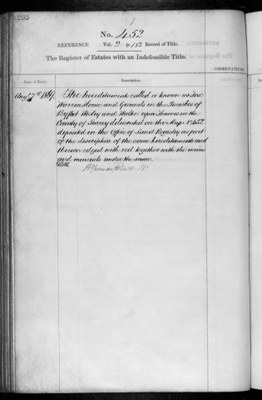 No. 452
REFERENCE Vol. 2 p 182 Record of Title.
The Register of Estates with an Indefeasible Title.
OBSERVATIONS
Date of Entry. Description.
Augt 7th 186 The hereditaments called or known as
Warren House and Grounds in the Parishes of
Byfleet Wisley and Walton upon Thames in the
County of Surrey delineated on the Map No 452
deposited in the Office of Land Registry as part
of the description of the same hereditaments and
thereon edged with red together with the mines
and minerals under the same.